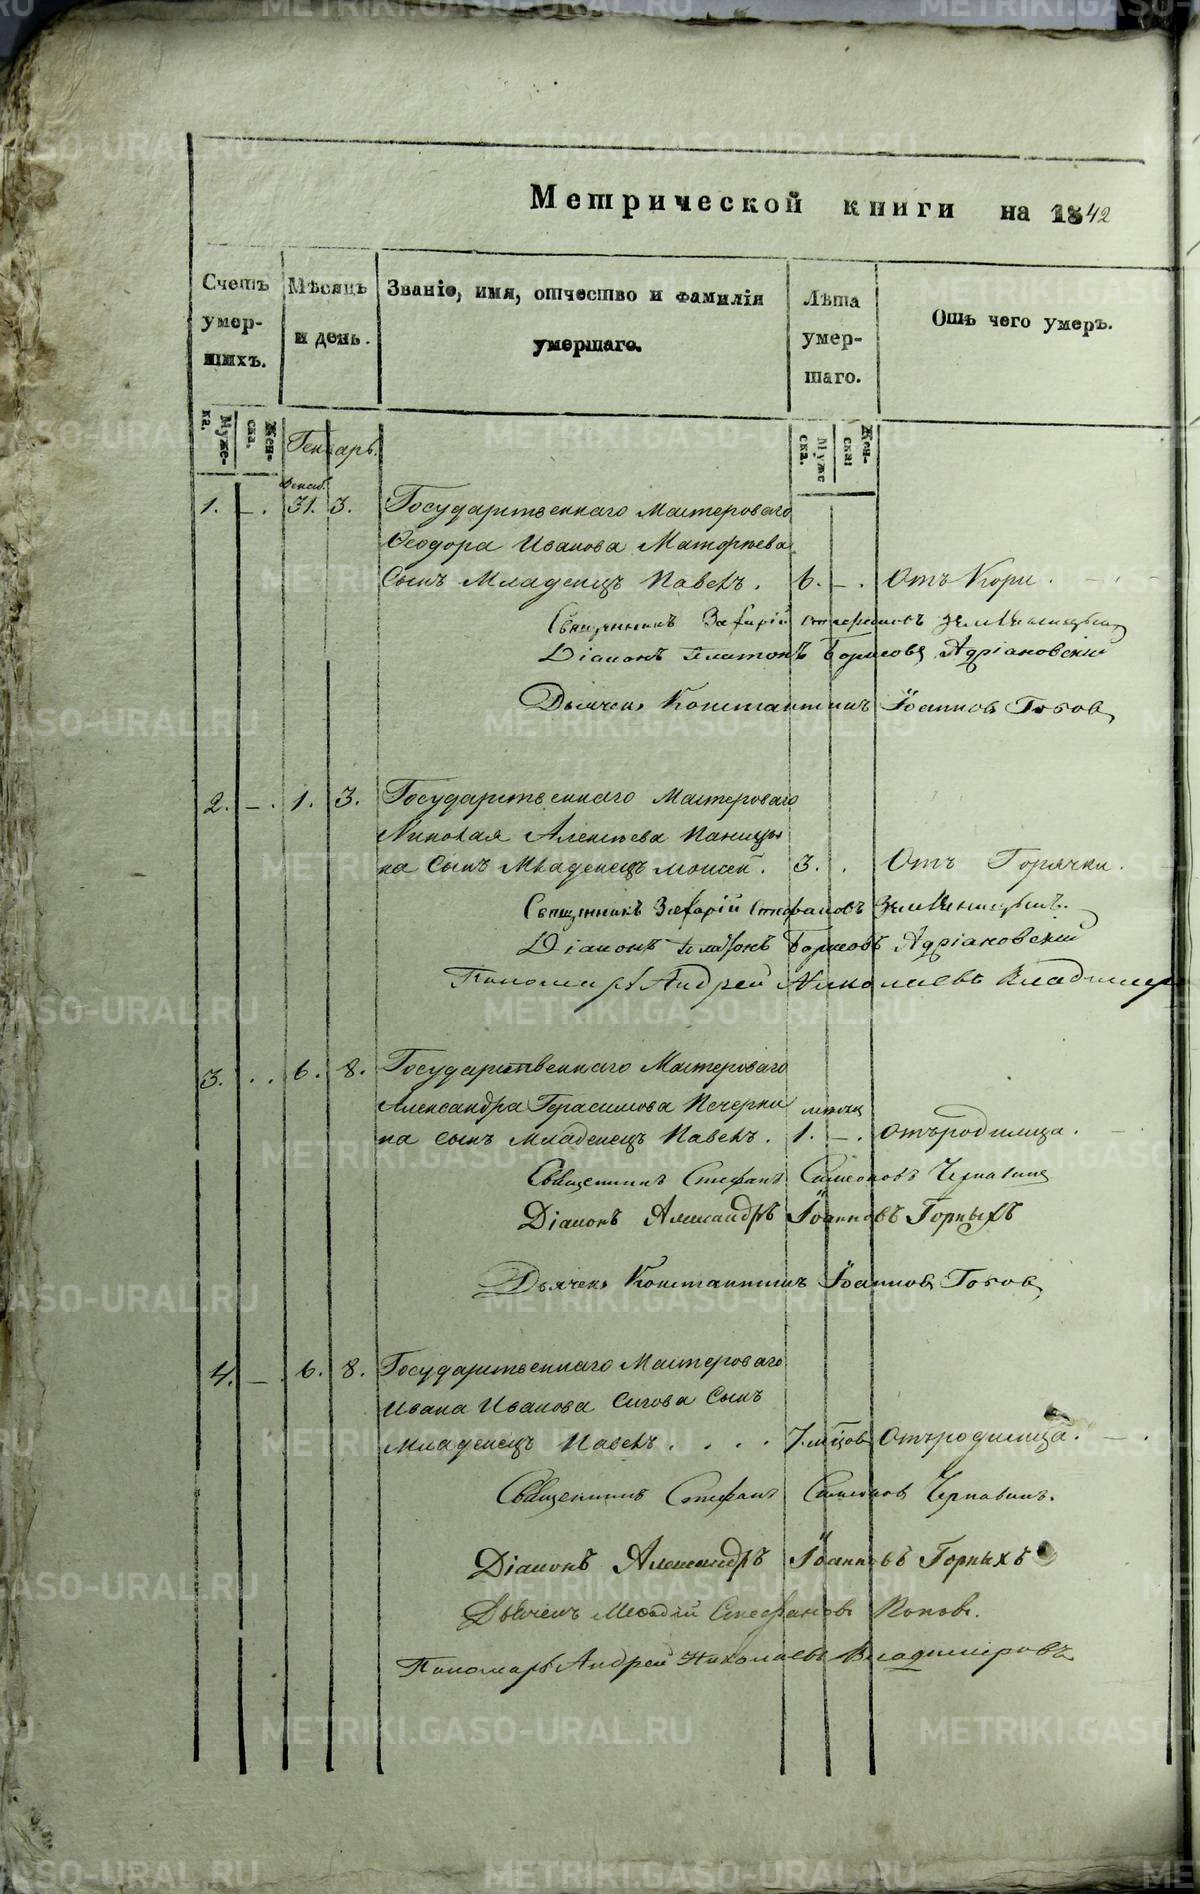 Метрической книги на 1842
Счетъ умер- шихъ.
Мѣсяцъ и день.
Званіе, имя, отчество и фамилія умершаго.
Лѣта умер- шаго.
Отъ чего умеръ.
Муже- ка.
Жен- ска.
Генварь.
Муже ска.
Жен- ска:
Декаб.
1. – . 31. 3. Государственнаго Мастероваго
Ѳеодора Иванова Матфѣева
Сынъ Младенецъ Павелъ. 6. – . Отъ Кори.
Священникъ Захарій Стефановъ
Діаконъ Платонъ Борисовъ Адріановскій
Дьячекъ Константинъ Іоанновъ
2. – . 1. 3. Государственнаго Мастероваго
Николая Алексѣева Паницы
на Сынъ Младенецъ Моисей. 3. . Отъ Горячки.
Священникъ Захарій Стефановъ
Діаконъ Платонъ Борисовъ Адріановскій
Пономарь Андрей Николаевъ Владимир
3. . . 6. 8. Государственнаго Мастероваго
Александра Герасимова Печерки
на сынъ Младенецъ Павелъ. 1. – . Отъ родимца.
Священникъ Стефанъ Симеоновъ Чернавинъ
Діаконъ Александръ Іоанновъ Горныхъ
Дьячекъ Константинъ Іоанновъ
4. – . 6. 8. Государственнаго Мастероваго
Ивана Иванова Сигова Сынъ
Младенецъ Павелъ. . . . 7. мѣсцовъ Отъ родимца.
Священникъ Стефанъ Симеоновъ Чернавинъ.
Діаконъ Александръ Іоанновъ Горныхъ
Дьячекъ Меѳодій Стефановъ Поповъ.
Пономарь Андрей Николаевъ Владимировъ
METRIKI.GASO-URAL.RU